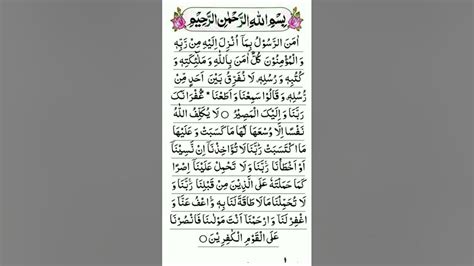 بِسْمِ اللهِ الرَّحْمٰنِ الرَّحِيْمِ
اٰمَنَ الرَّسُوْلُ بِمَاۤ اُنْزِلَ اِلَيْهِ مِنْ رَّبِّهٖ
وَالْمُؤْمِنُوْنَ كُلٌّ اٰمَنَ بِاللّٰهِ وَمَلٰٓئِكَتِهٖ وَ
كُتُبِهٖ وَرُسُلِهٖ لَا نُفَرِّقُ بَيْنَ اَحَدٍ مِّنْ
رُّسُلِهٖ وَقَالُوْا سَمِعْنَا وَاَطَعْنَا غُفْرَانَكَ
رَبَّنَا وَاِلَيْكَ الْمَصِيْرُ ○ لَا يُكَلِّفُ اللّٰهُ
نَفْسًا اِلَّا وُسْعَهَا لَهَا مَا كَسَبَتْ وَعَلَيْهَا
مَا اكْتَسَبَتْ رَبَّنَا لَا تُؤَاخِذْنَاۤ اِنْ نَّسِيْنَاۤ
اَوْ اَخْطَأْنَا رَبَّنَا وَلَا تَحْمِلْ عَلَيْنَاۤ اِصْرًا
كَمَا حَمَلْتَهٗ عَلَى الَّذِيْنَ مِنْ قَبْلِنَا رَبَّنَا وَ
لَا تُحَمِّلْنَا مَا لَا طَاقَةَ لَنَا بِهٖ وَاعْفُ عَنَّا وَ
اغْفِرْ لَنَا وَارْحَمْنَا اَنْتَ مَوْلٰىنَا فَانْصُرْنَا
عَلَى الْقَوْمِ الْكٰفِرِيْنَ ○